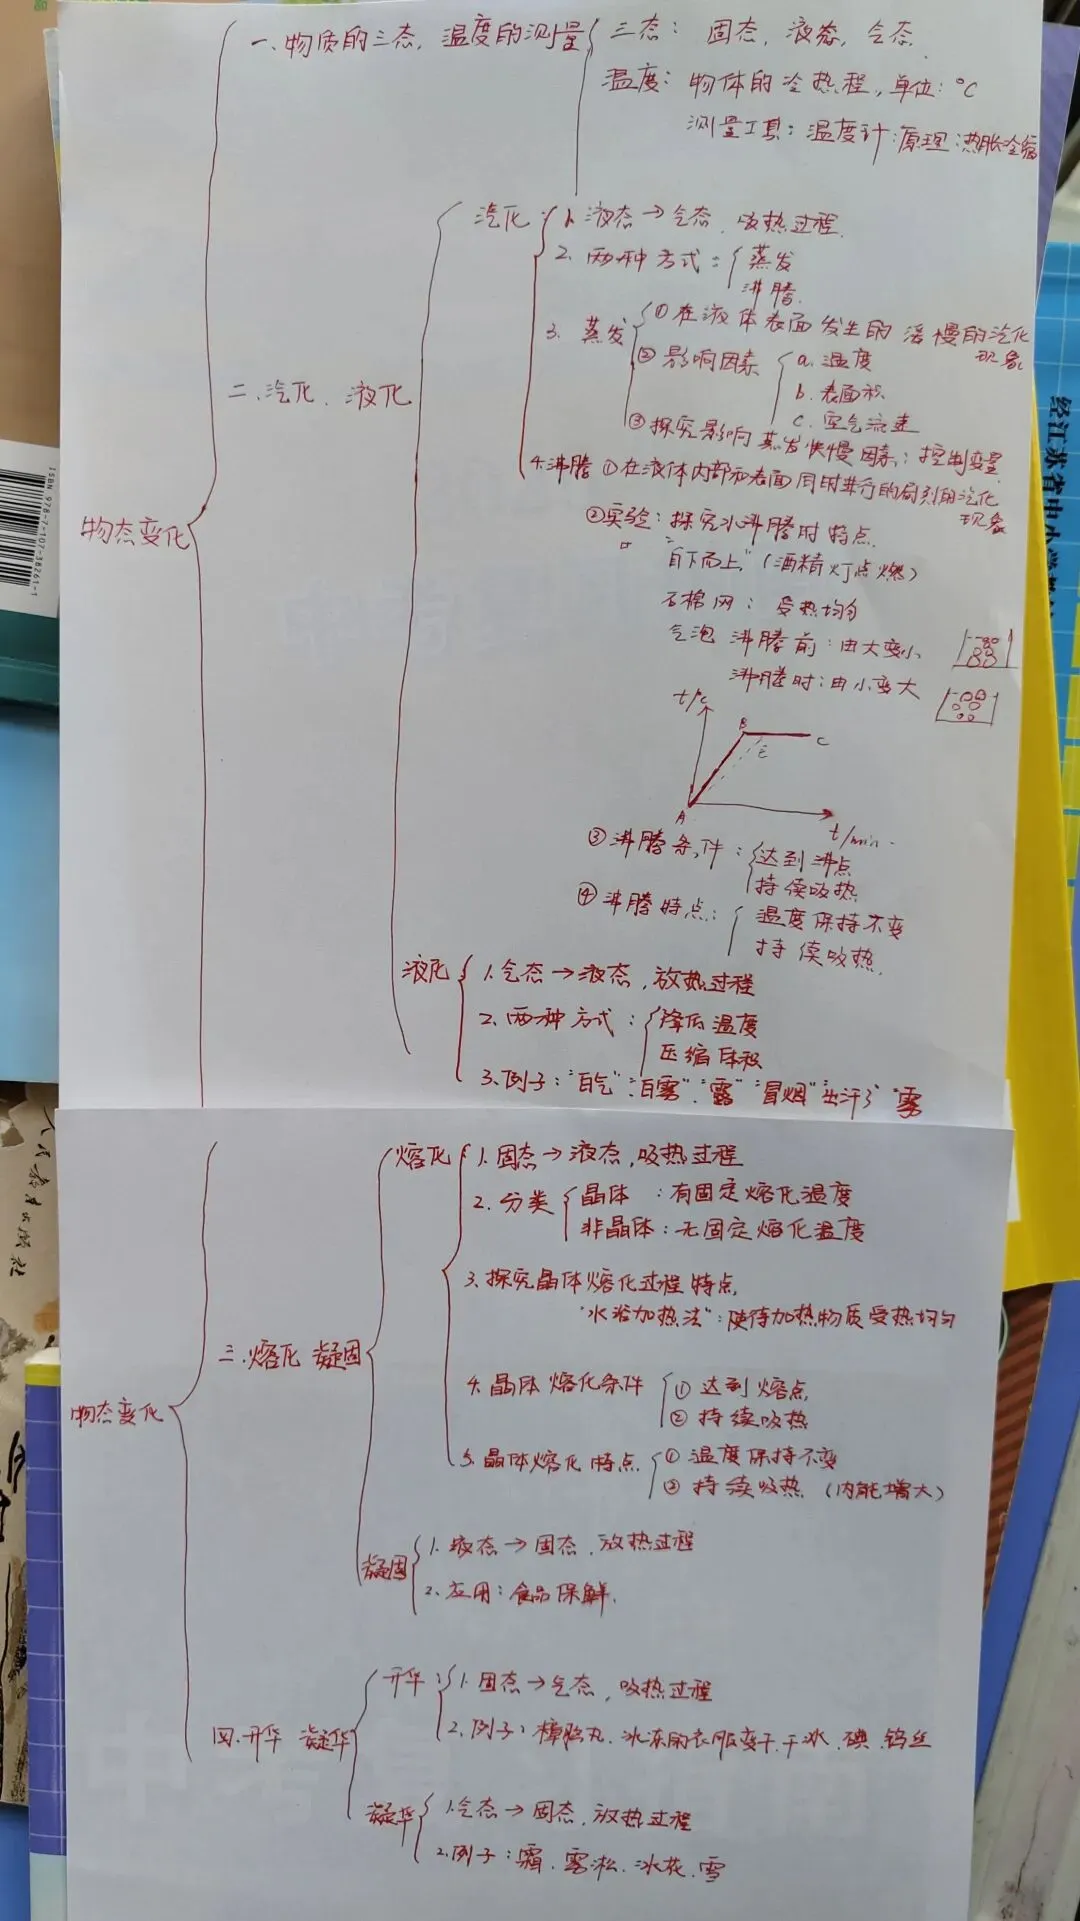 一、物质的三态,温度的测量 三态: 固态,液态,气态.
温度: 物体的冷热程,单位: ℃
测量工具: 温度计 原理:热胀冷缩
汽化: 1. 液态→气态,吸热过程.
2. 两种方式: 蒸发
沸腾.
3. 蒸发 ①在液体表面发生的缓慢的汽化
现象
②影响因素 a. 温度
b. 表面积
二.汽化、液化
c. 空气流速
③探究影响蒸发快慢因素: 控制变量
4.沸腾 ①在液体内部和表面同时进行的剧烈的汽化
现象
②实验: 探究水沸腾时特点.
物态变化
"自下而上"(酒精灯点燃)
石棉网: 受热均匀
气泡 沸腾前: 由大变小
沸腾时: 由小变大
t/℃
B
E
C
A
t/min
③沸腾条件: 达到沸点
持续吸热
④沸腾特点: 温度保持不变
持续吸热.
液化 1.气态→液态,放热过程
2.两种方式: 降低温度
压缩体积
3.例子: "白气"、"白雾"、"露" "冒烟" "出汗" "雾
熔化 1.固态→液态,吸热过程
2.分类 晶体: 有固定熔化温度
非晶体: 无固定熔化温度
3.探究晶体熔化过程特点.
"水浴加热法": 使待加热物质受热均匀
三.熔化 凝固
4.晶体熔化条件 ①达到熔点.
②持续吸热
物态变化
5.晶体熔化特点 ①温度保持不变
②持续吸热(内能增大)
凝固 1.液态→固态,放热过程
2.应用: 食品保鲜.
升华: 1.固态→气态,吸热过程
2.例子: 樟脑丸.冰冻的衣服变干.干冰.碘.钨丝
四.升华 凝华
凝华 1.气态→固态,放热过程
2.例子: 霜.雾凇.冰花.雪
ISBN 978-7-107-38261-1
经江苏省中小学教
人民教育出版社